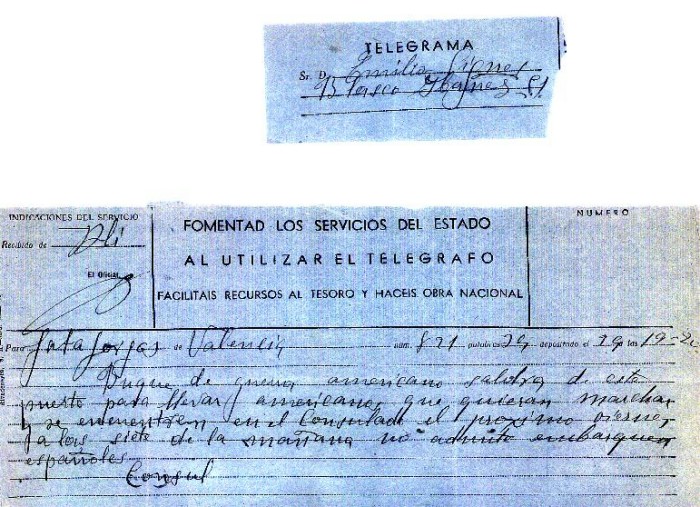 TELEGRAMA
Sr. D. Emilio Signes
Blasco Ibañez 51
INDICACIONES DEL SERVICIO
Recibido de
El Oficial
FOMENTAD LOS SERVICIOS DEL ESTADO
AL UTILIZAR EL TELEGRAFO
FACILITAIS RECURSOS AL TESORO Y HACEIS OBRA NACIONAL
NUMERO
Para Gata Gorgos de Valencia núm. 821 palabras 39 depositado el 29 a las 19-20
Buque de guerra americano saldra de este
puerto para llevar americanos que quieran marchar
y se encuentren en el Consulado el proximo viernes
a las siete de la mañana no admite embarquen
españoles
Consul